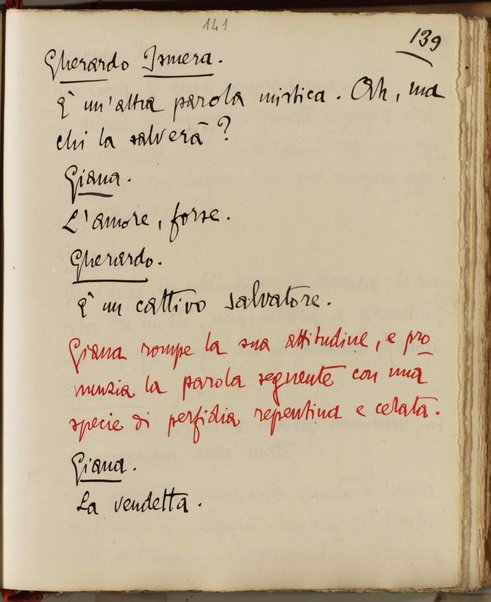 141
139
Gherardo Ismera.
È un'altra parola mistica. Ah, ma
chi la salverà?
Giana.
L'amore, forse.
Gherardo.
È un cattivo salvatore.
Giana rompe la sua attitudine, e pro
nunzia la parola seguente con una
specie di perfidia repentina e celata.
Giana.
La vendetta.